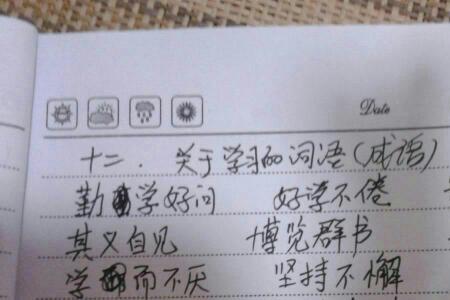 Date
十二. 关于学习的词语(成语)
勤学好问 好学不倦
其义自见 博览群书
学而不厌 坚持不懈